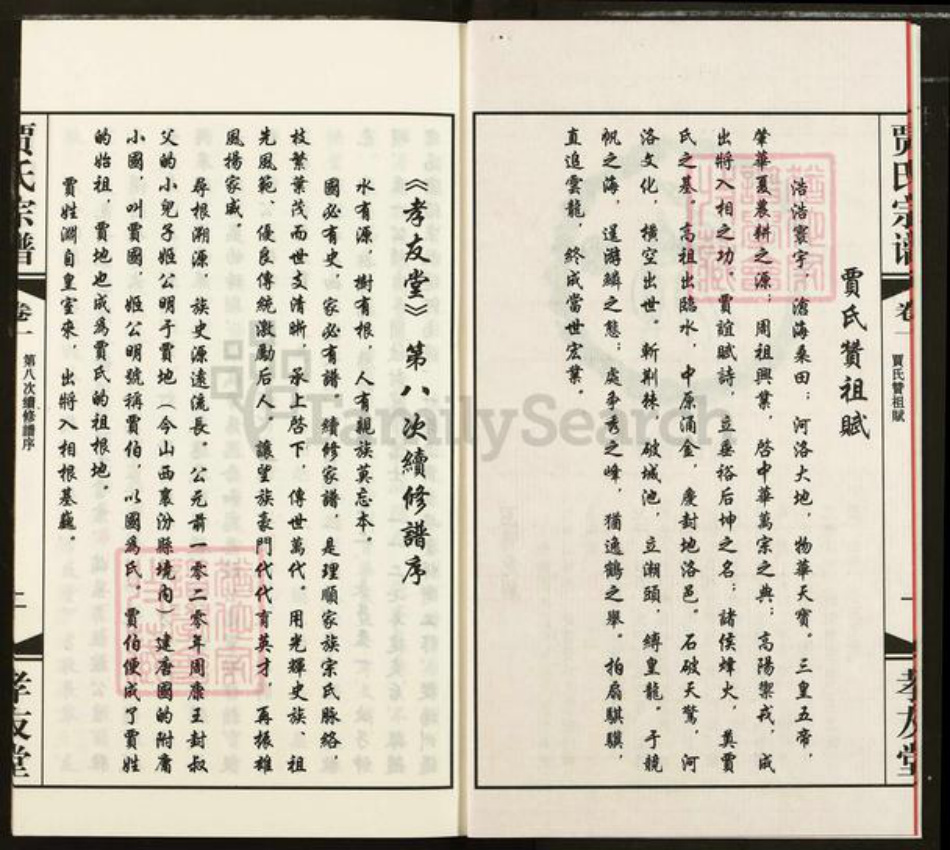 賈氏贊祖賦
浩浩寰宇，滄海桑田；河洛大地，物華天寶。三皇五帝，
肇華夏農耕之源；周祖興業，啓中華萬宗之典；高陽禦戎，成
出將入相之功，賈誼賦詩，立垂裕后坤之名；諸侯烽火，奠賈
氏之基。高祖出臨水，中原涌金，慶封地洛邑。石破天驚，河
洛文化，橫空出世。斬荆棘，破城池，立潮頭，縛皇龍。予競
帆之海，逞游鱗之態；處爭秀之峰，猶逸鶴之舉。拍扇騏驥，
直追雲龍，終成當世宏業。
賈氏宗谱
卷一
賈氏贊祖賦
一
孝友堂
《孝友堂》第八次續修譜序
水有源，樹有根，人有親族莫忘本。
國必有史，家必有譜。續修家譜，是理順家族宗氏脉絡，
枝繁葉茂而世支清晰，承上啓下，傳世萬代，用光輝史族、祖
先風範、優良傳統激勵后人，讓望族豪門代代育英才，再振雄
風揚家威。
尋根溯源，族史源遠流長。公元前一零二零年周康王封叔
父的小兒子姬公明于賈地（今山西襄汾縣境内）建唐國的附庸
小國，叫賈國，姬公明號稱賈伯，以國爲氏，賈伯便成了賈姓
的始祖，賈地也成爲賈氏的祖根地。
賈姓淵自皇室來，出將入相根基巍。
賈氏宗譜
卷一
第八次續修譜序
二
孝友堂
FamilySearch